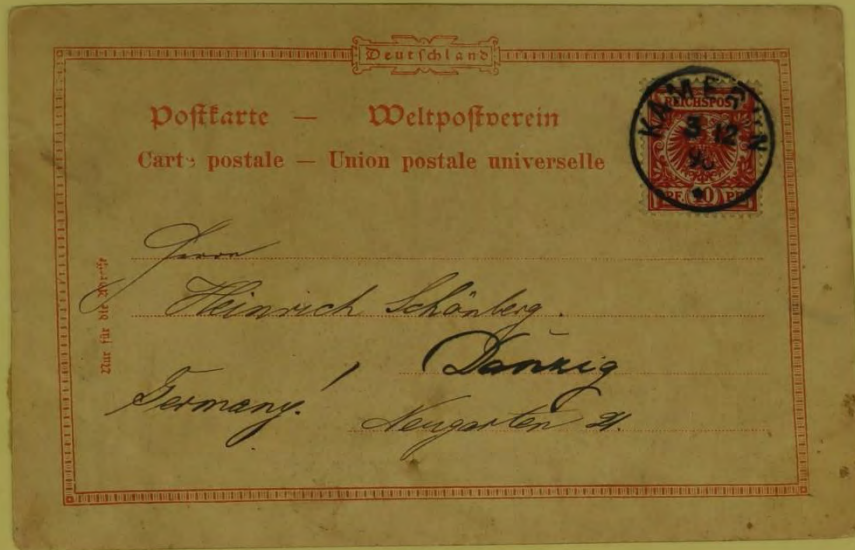 Deutschland
Postkarte — Weltpostverein
Carte postale — Union postale universelle
KAMERUN
3 12
REICHSPOST
PF. 10 PF.
Nur für die Adresse
Herrn
Heinrich Schönberg.
Danzig
Germany!
Neugarten 21.